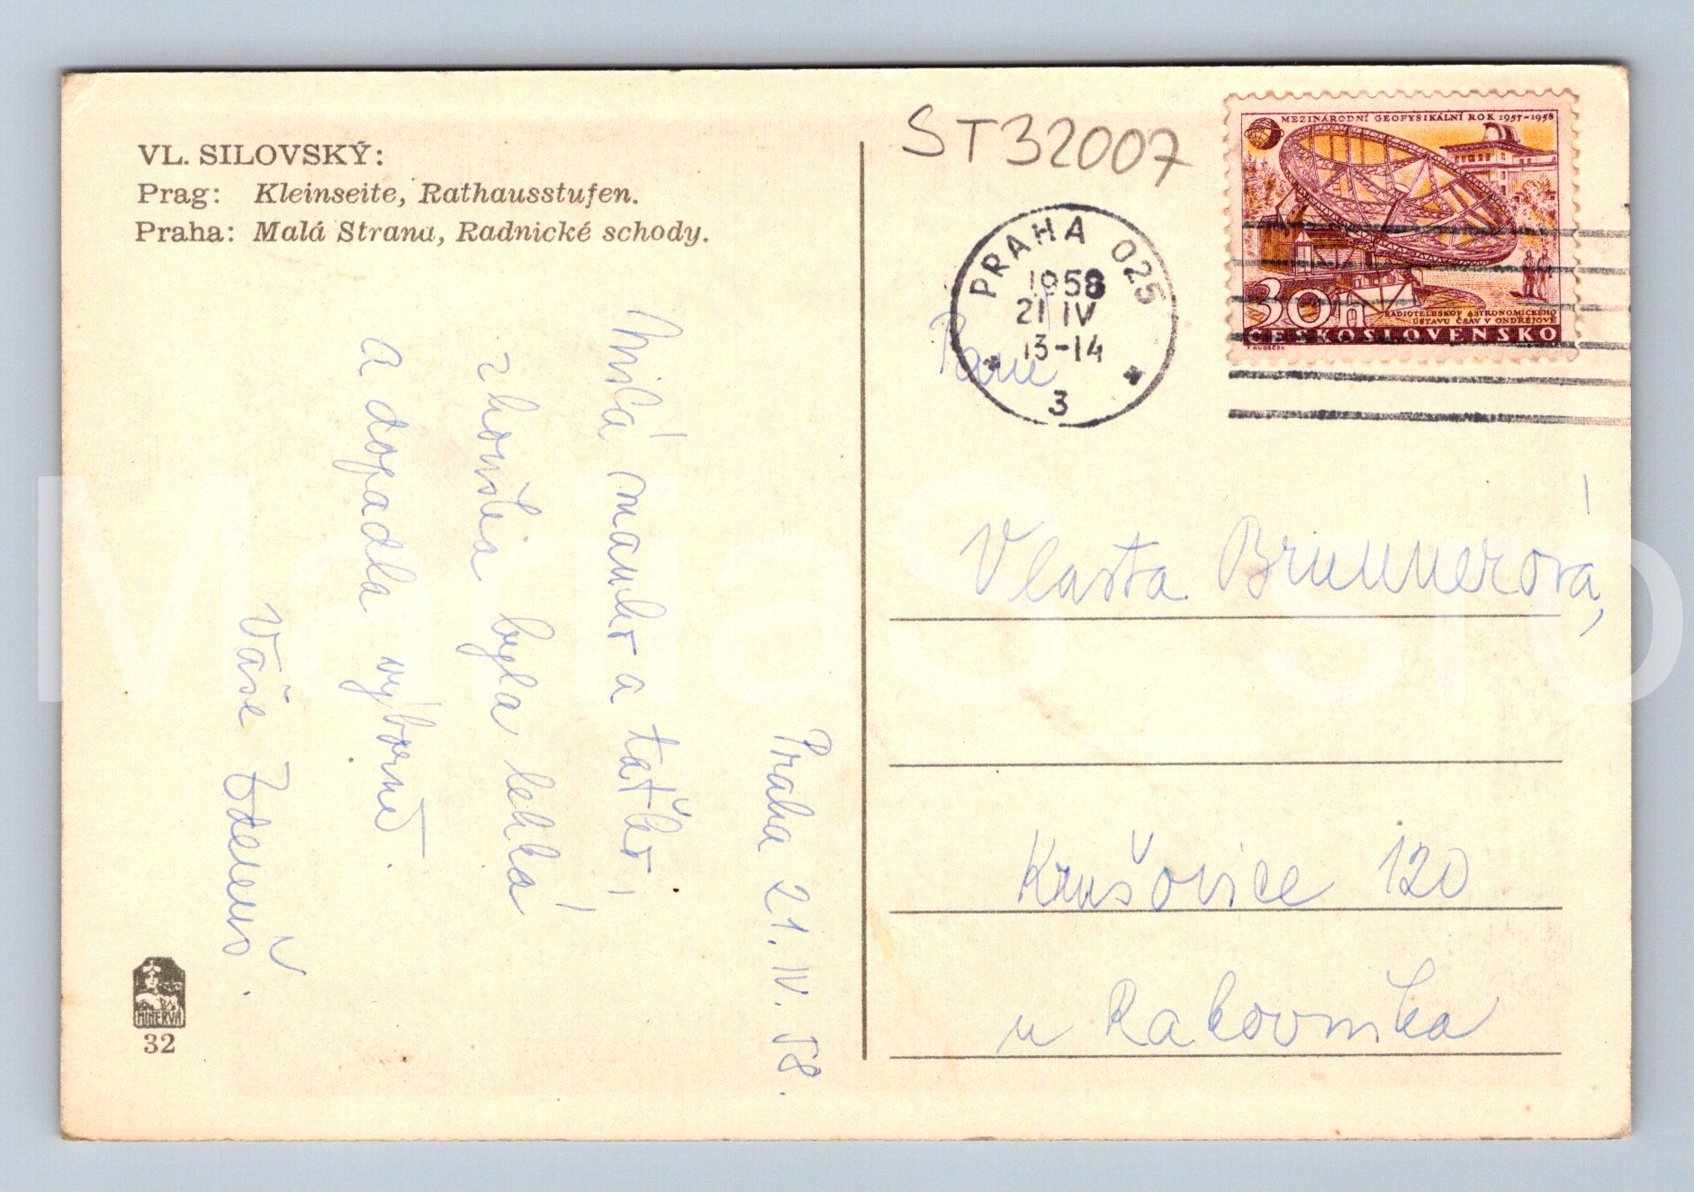 VL. SILOVSKÝ:
Prag: Kleinseite, Rathausstufen.
Praha: Malá Strana, Radnické schody.
ST32007
MEZINÁRODNÍ GEOFYSIKÁLNÍ ROK 1957-1958
30h
RADIOTELESKOP ASTRONOMICKÉHO
ÚSTAVU ČSAV V ONDŘEJOVĚ
ČESKOSLOVENSKO
PRAHA 025
1958
21 IV
13-14
3
Praha 21. IV. 58.
Milá mamko a taťko,
zkouška byla lehká
a dopadla výborně.
Vaše Zdenuš.
Paní
Vlasta Brunnerová,
Krušovice 120
u Rakovníka
MINERVA
32